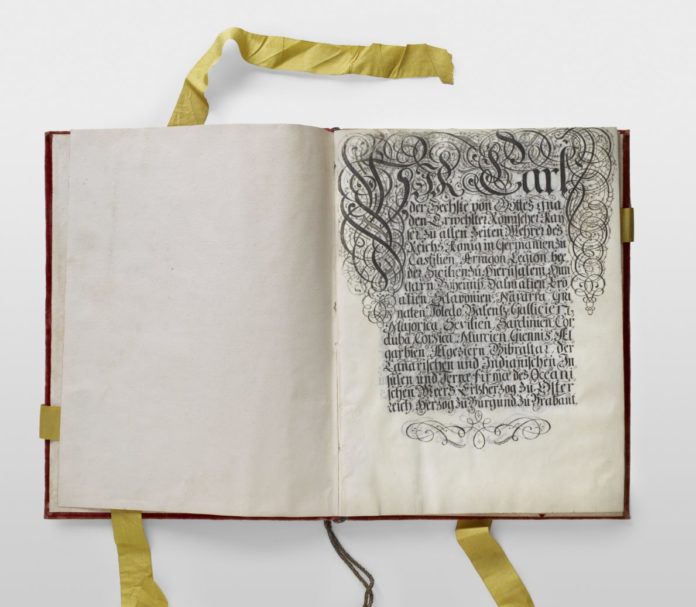 Wir Carl
der Sechste von Gottes gna
den Erwehlter Römischer Kay
ser zu allen Zeiten Mehrer des
Reichs König in Germanien zu
Castilien Arragon Legion bey
der Sicilien zu Hierusalem Hun
garn Böheimb Dalmatien Cro
atien Sclavonien Navarra Gra
naten Toledo Valentz Gallicien
Majorica Sevilien Sardinien Cor
duba Corsica Murcien Giennis Al
garbien Algeziern Gibraltar der
Canarischen und Indianischen In
sulen und Terræ firmæ des Oceani
schen Meers Ertzherzog zu Öster
reich Herzog zu Burgund zu Brabant